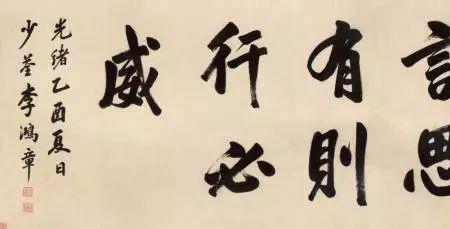 言思
有則
行必
威
光緒乙酉夏日
少荃李鴻章